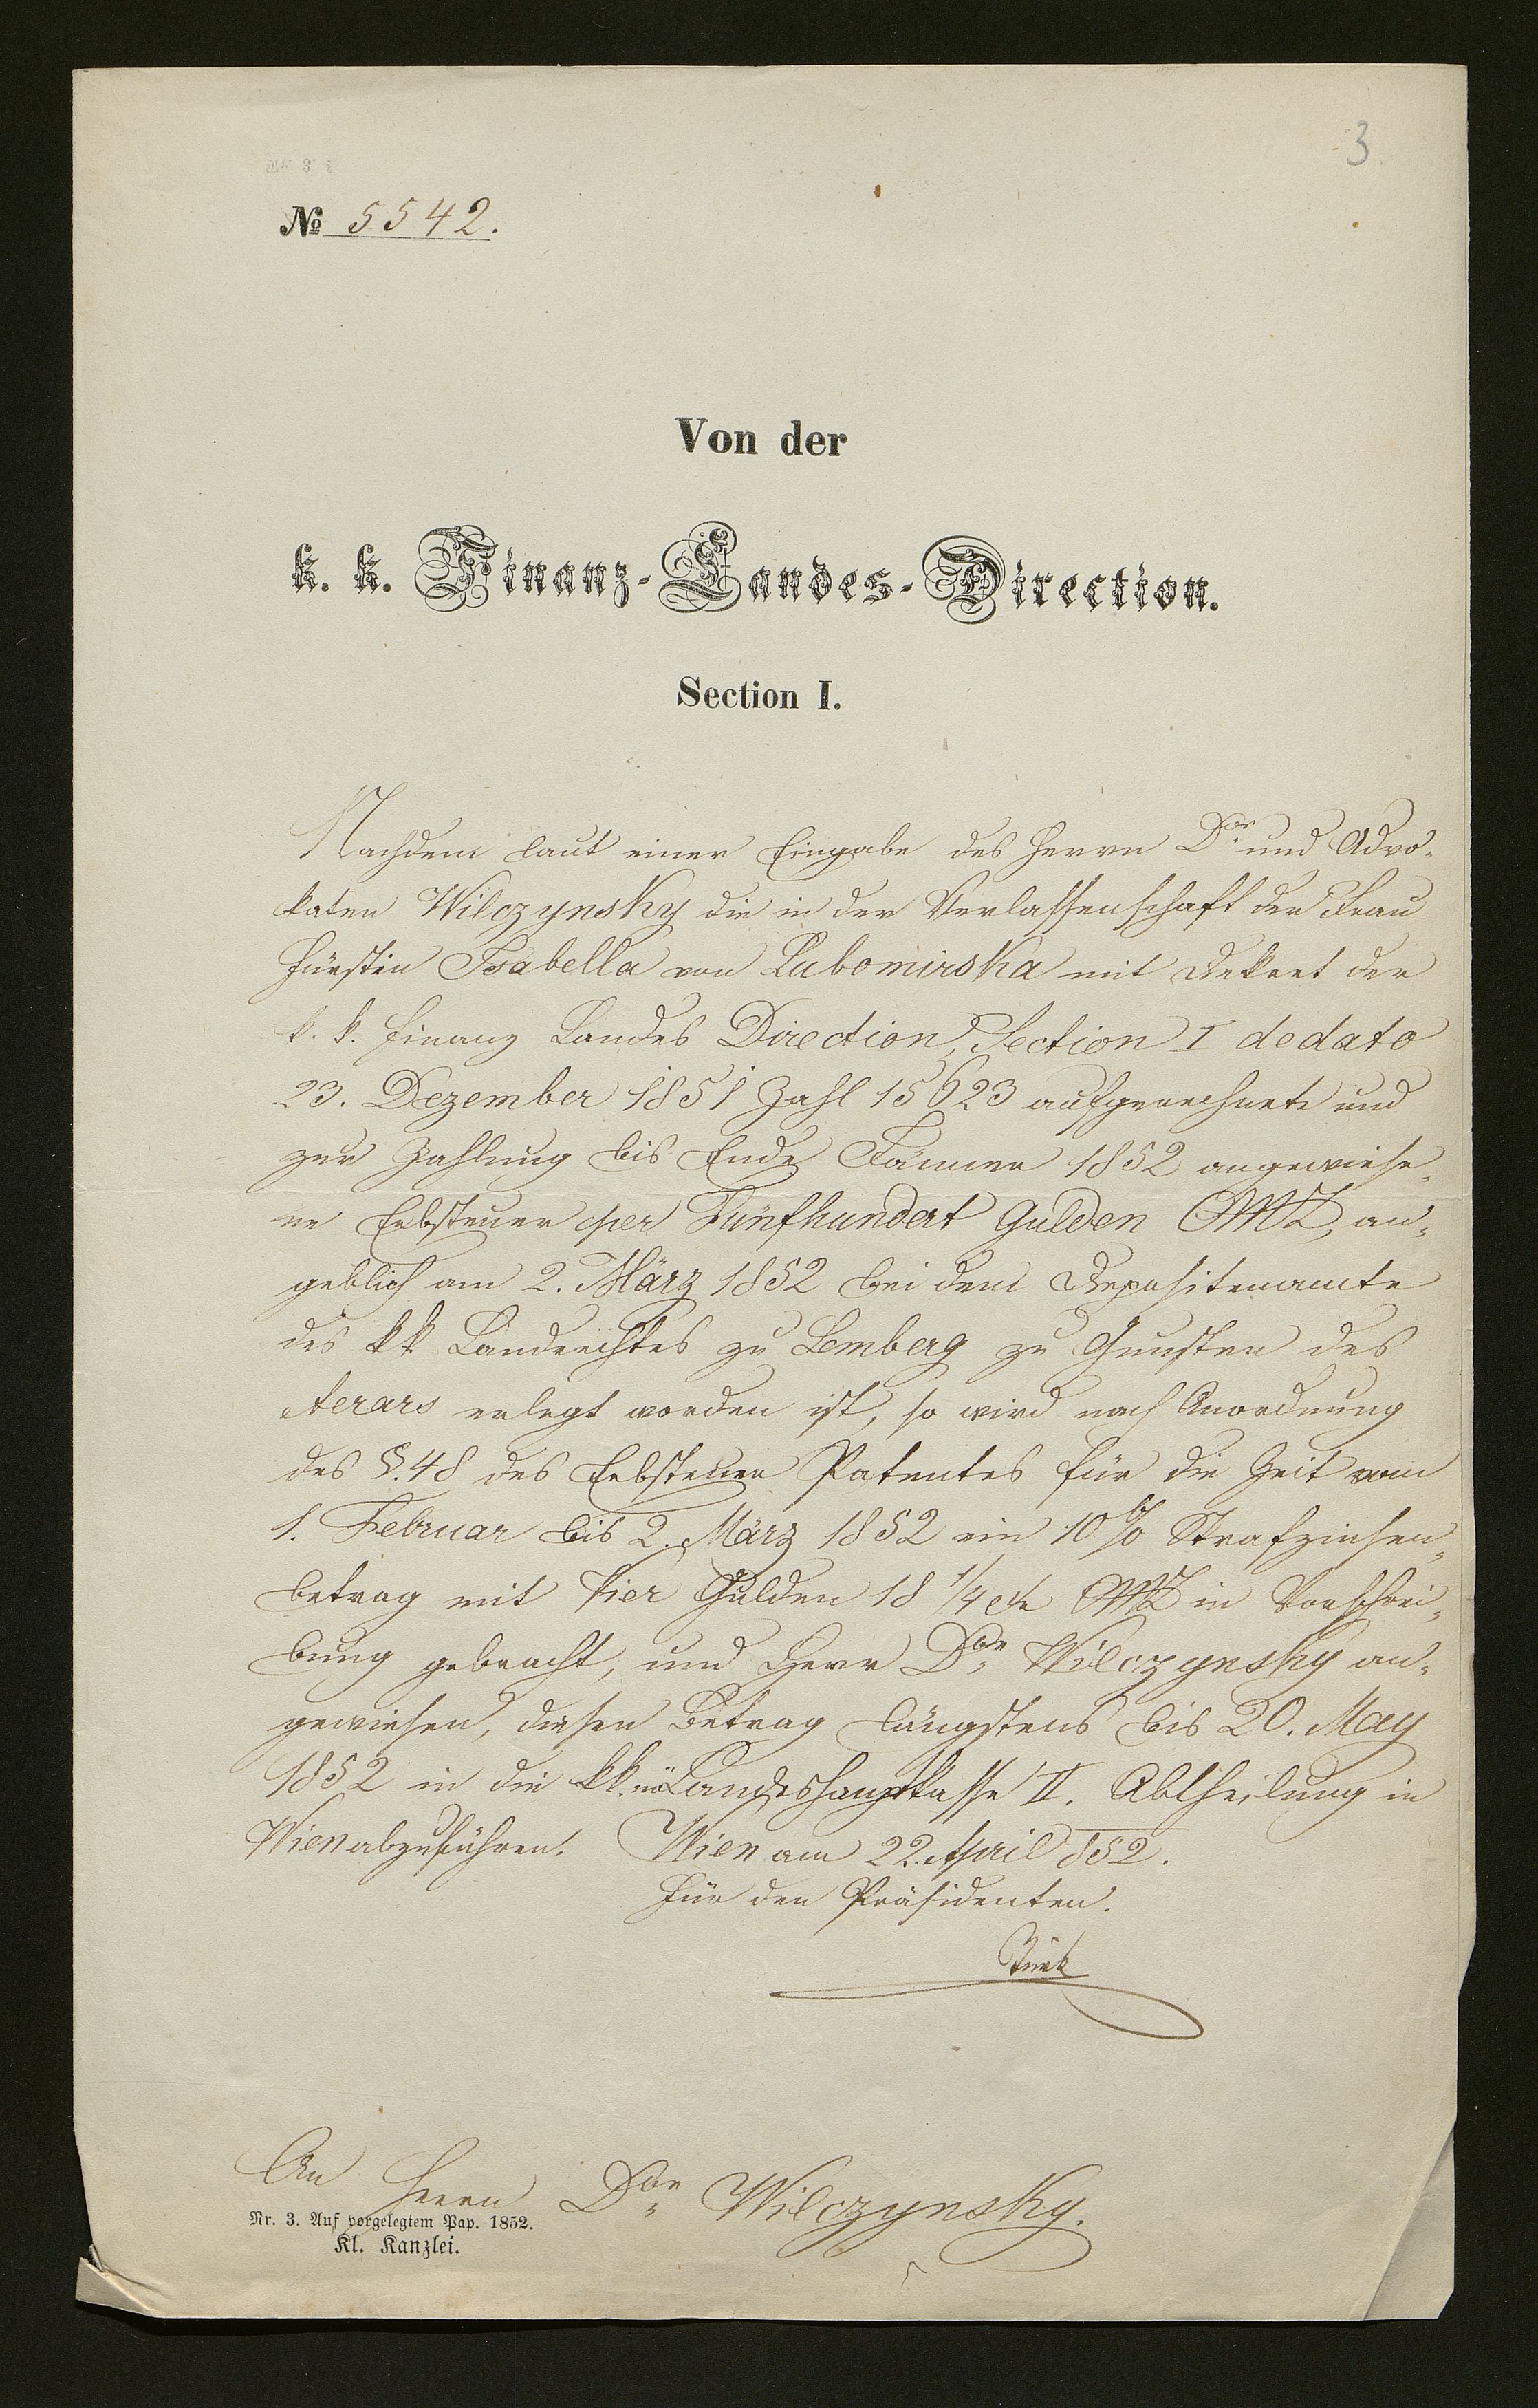 3
№ 5542.
Von der
k. k. Finanz-Landes-Direction.
Section I.
Nachdem laut einer Eingabe des Herrn Dor und Advo-
katen Wilczynsky die in der Verlassenschaft der Frau
Fürstin Isabella von Lubomirska mit Dekret der
k. k. Finanz Landes Direction, Section I de dato
23. Dezember 1851 Zahl 15623 aufgerechnete und
zur Zahlung bis Ende Jänner 1852 angewiese-
ne Erbsteuer per Fünfhundert Gulden CMZ, an-
geblich am 2. März 1852 bei dem Depositenamte
des kk Landrechtes zu Lemberg zu Gunsten des
Aerars erlegt worden ist, so wird nach Anordnung
des §. 48 des Erbsteuer Patentes für die Zeit vom
1. Februar bis 2. März 1852 ein 10% Strafzinsen-
betrag mit Vier Gulden 18 1/4 xr CMZ in Vorschrei-
bung gebracht, und Herr Dor Wilczynsky an-
gewiesen, diesen Betrag längstens bis 20. May
1852 in die kk. nö Landeshauptkasse II. Abtheilung in
Wien abzuführen. Wien am 22. April 852.
Für den Präsidenten.
An Herrn Dor Wilczynsky.
Nr. 3. Auf vorgelegtem Pap. 1852.
Kl. Kanzlei.